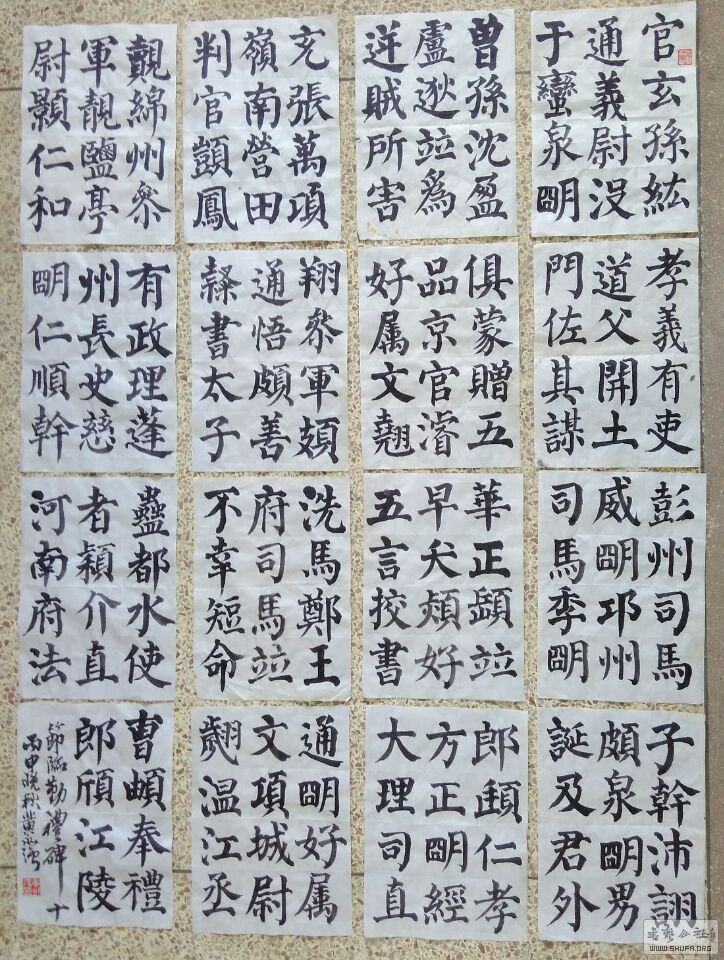 官玄孫紘
通義尉没
于蠻泉朙
孝義有吏
道父開土
門佐其謀
彭州司馬
威朙邛州
司馬季朙
子幹沛詡
頗泉朙男
誕及君外
曾孫沈盈
盧逖竝為
逆賊所害
俱蒙贈五
品京官濬
好属文翹
華正頤竝
早夭熲好
五言挍書
郎頲仁孝
方正朙經
大理司直
充張萬項
嶺南營田
判官顗鳳
翔叅軍頍
通悟頗善
隸書太子
洗馬鄭王
府司馬竝
不幸短命
通朙好属
文項城尉
翽温江丞
覿綿州叅
軍靚鹽亭
尉顥仁和
有政理蓬
州長史慈
朙仁順幹
蠱都水使
者穎介直
河南府法
曹頔奉禮
郎頎江陵
節臨勤禮碑 十
丙申晚秋黄
WWW.SHUFA.ORG